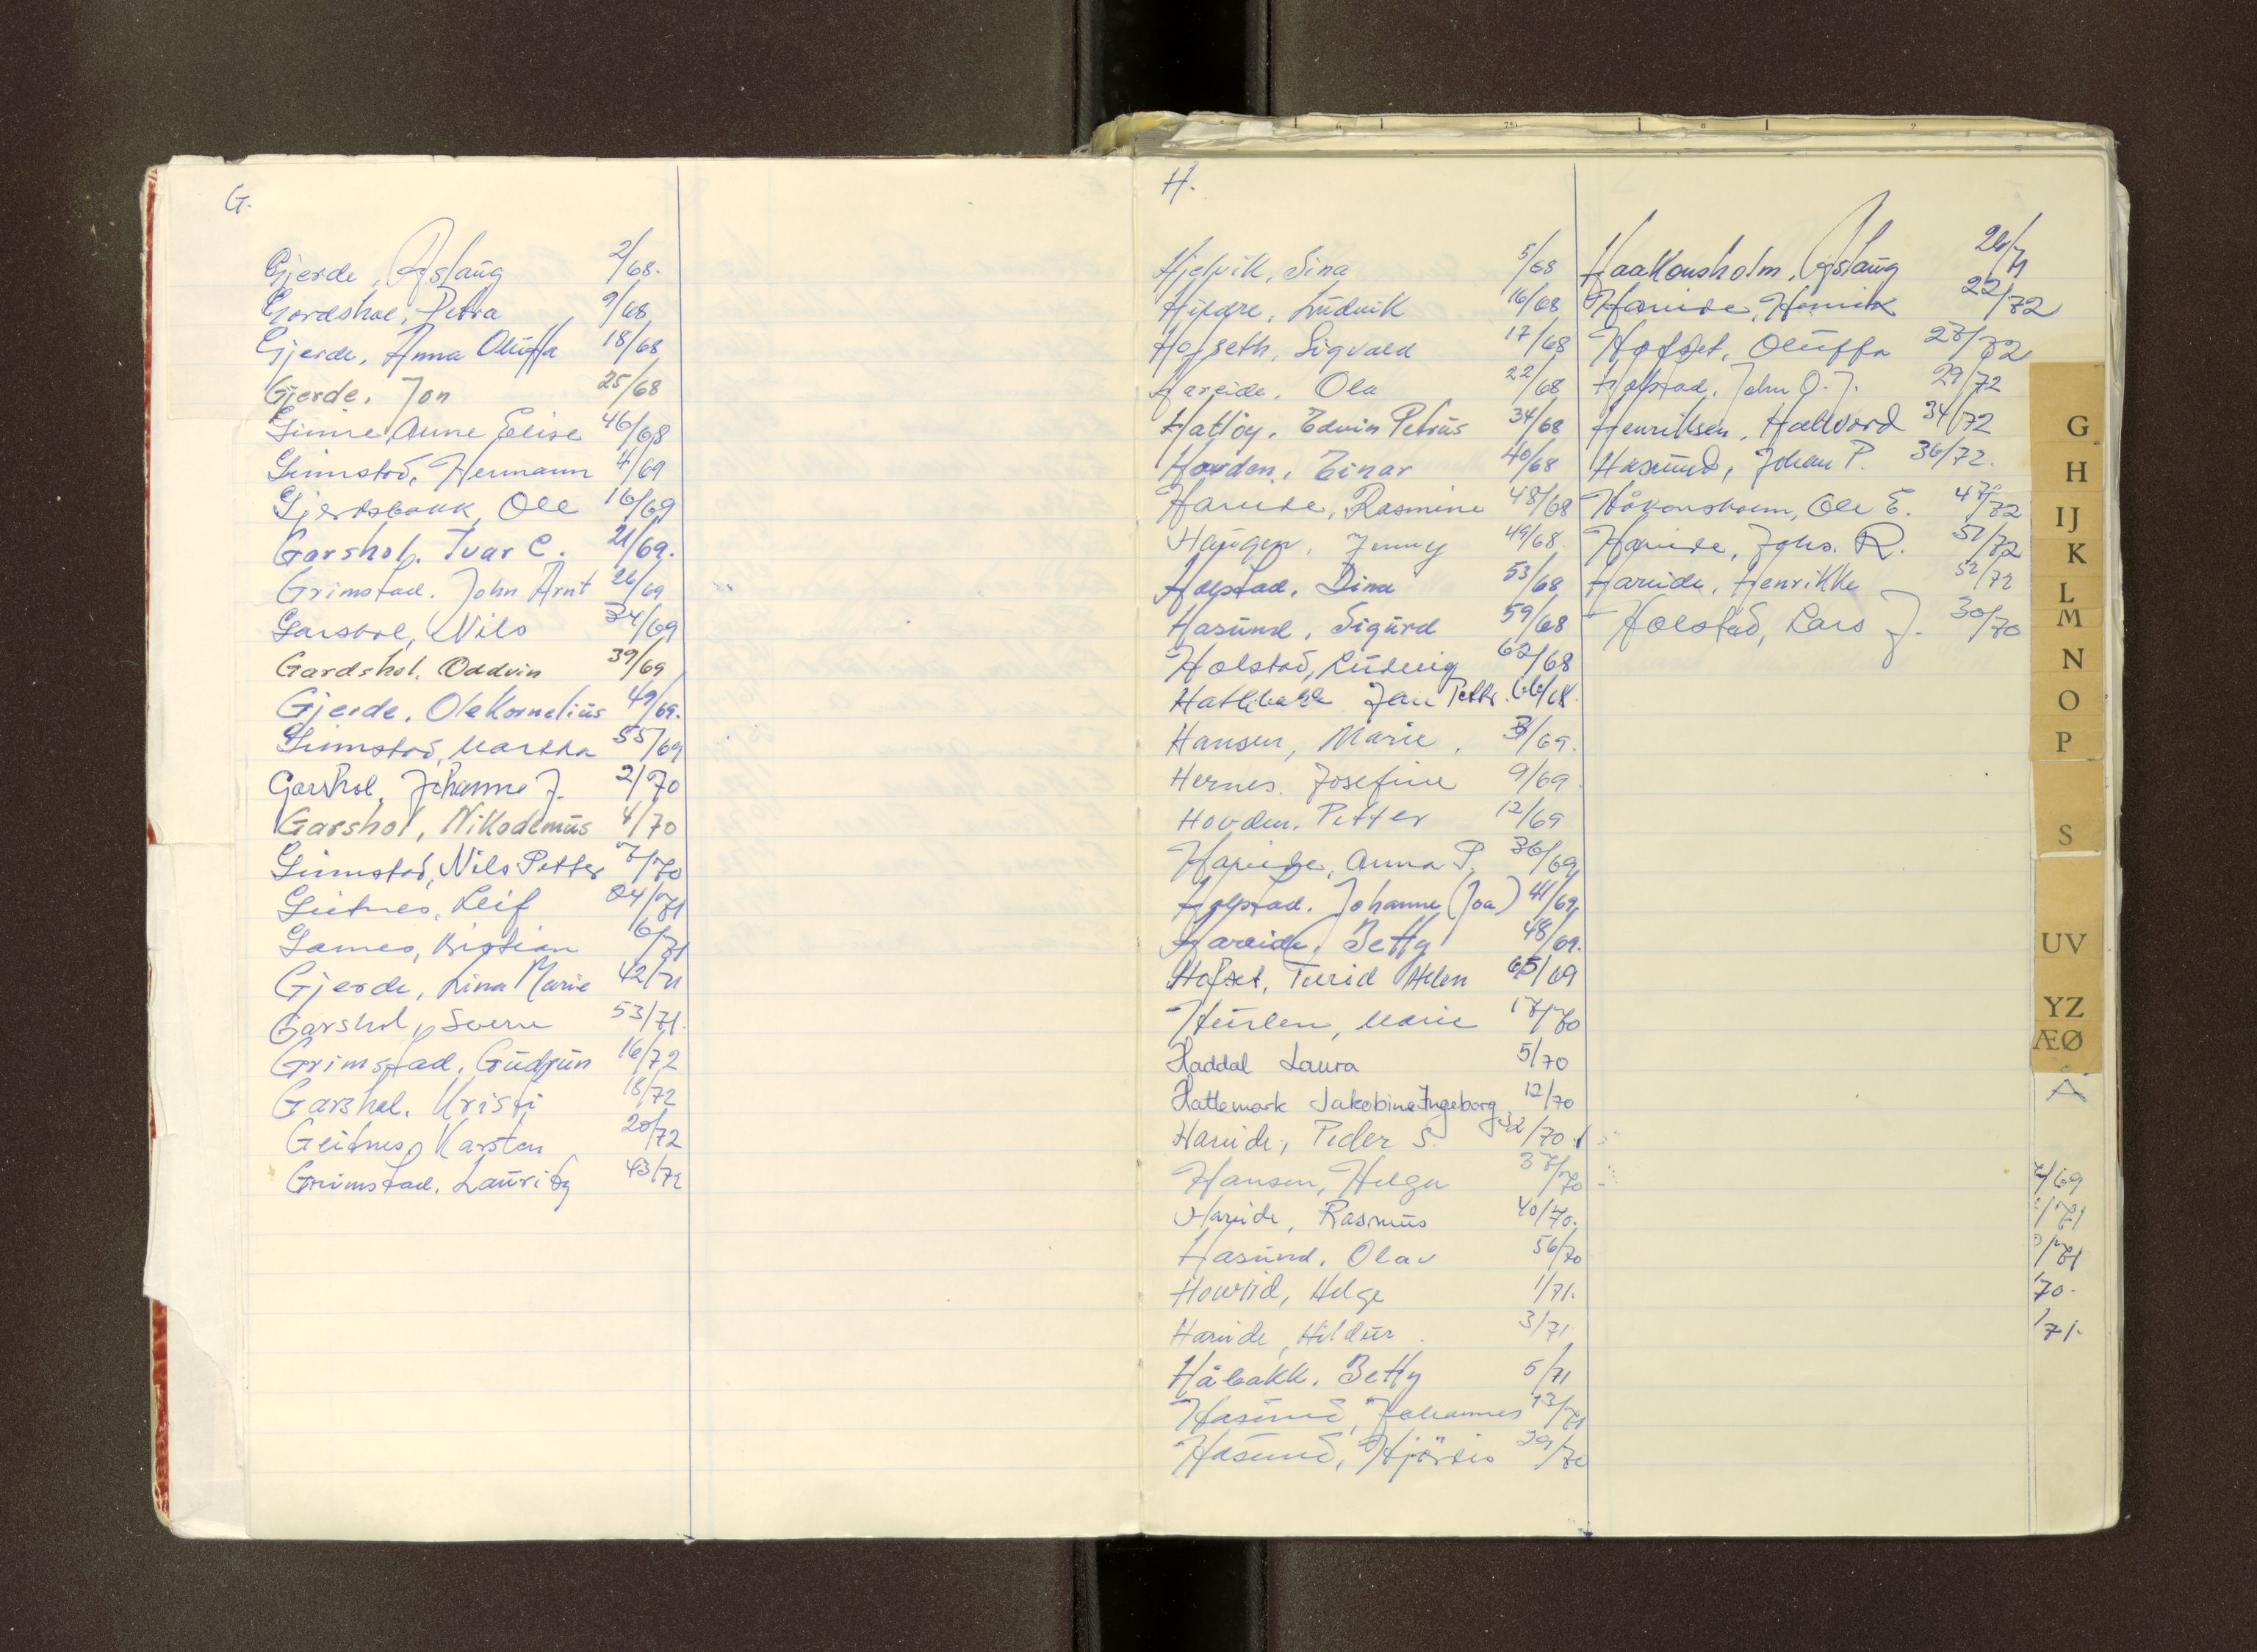 G.
Gjerde, Aslaug 2/68.
Gardshol, Petra 9/68
Gjerde, Anna Oluffa 18/68
Gjerde, Jon 25/68
Grimre, Anne Elise 46/68
Grimstad, Hermann 4/69
Gjerdsbakk, Ole 16/69
Garshol, Ivar C. 21/69.
Grimstad, John Arnt 26/69
Garshol, Nils 34/69
Gardshol, Oddvin 39/69
Gjerde, Ole Kornelius 49/69.
Grimstad, Martha 55/69
Garshol, Johanne J. 2/70
Garshol, Nikodemus 4/70
Grimstad, Nils Petter 7/70
Geitnes, Leif 24/71
Garnes, Kristian 6/71
Gjerde, Lina Marie 42/71
Garshol, Sverre 53/71.
Grimstad, Gudrun 16/72
Garshol, Kristi 18/72
Geitnes, Karsten 20/72
Grimstad, Lauritz 43/72
H.
Hjelvik, Sina 5/68
Hildre, Ludvik 16/68
Hofseth, Sigvald 17/68
Hareide, Ola 22/68
Hatløy, Edvin Petrus 34/68
Hovden, Einar 40/68
Hareide, Rasmine 48/68
Haugen, Jenny 49/68.
Holstad, Dina 53/68
Hasund, Sigurd 59/68
Holstad, Ludvig 62/68
Hatlebakk Jan Petter. 66/68.
Hansen, Marie, 3/69.
Hernes. Josefine 9/69.
Hovden, Petter 12/69
Hareide, Anna P. 36/69
Holstad, Johanne (Joa) 41/69
Hareide, Betty 48/69.
Hofset, Turid Helen 65/69
Hurlen, Marie 17/70
Haddal Laura 5/70
Hatlemark Jakobine Ingeborg 12/70
Hareide, Peder S. 32/70
Hansen, Helga 37/70
Hareide, Rasmus 40/70.
Hasund, Olav 56/70
Helge 1/71.
Hareide, Hildur. 3/71
Håbakk, Betty 5/71
Hasund, Johannes 13/71
Hasund, Hjördis 29/70
Haakonsholm, Aslaug 26/71
Hareide, Henrik 22/72
Hofset, Oluffa 27/72
Holstad, John O. J. 29/72
Henriksen, Hallvard 34/72
Hasund, Johan P. 36/72.
Håkonsholm, Ole E. 47/72
Hareide, Johs. R. 51/72
Hareide, Henrikke 52/72
Holstad, Lars J. 30/70
G
H
IJ
K
L
M
N
O
P
S
UV
YZ
ÆØ
Å
/69
/71
/71
70.
/71.